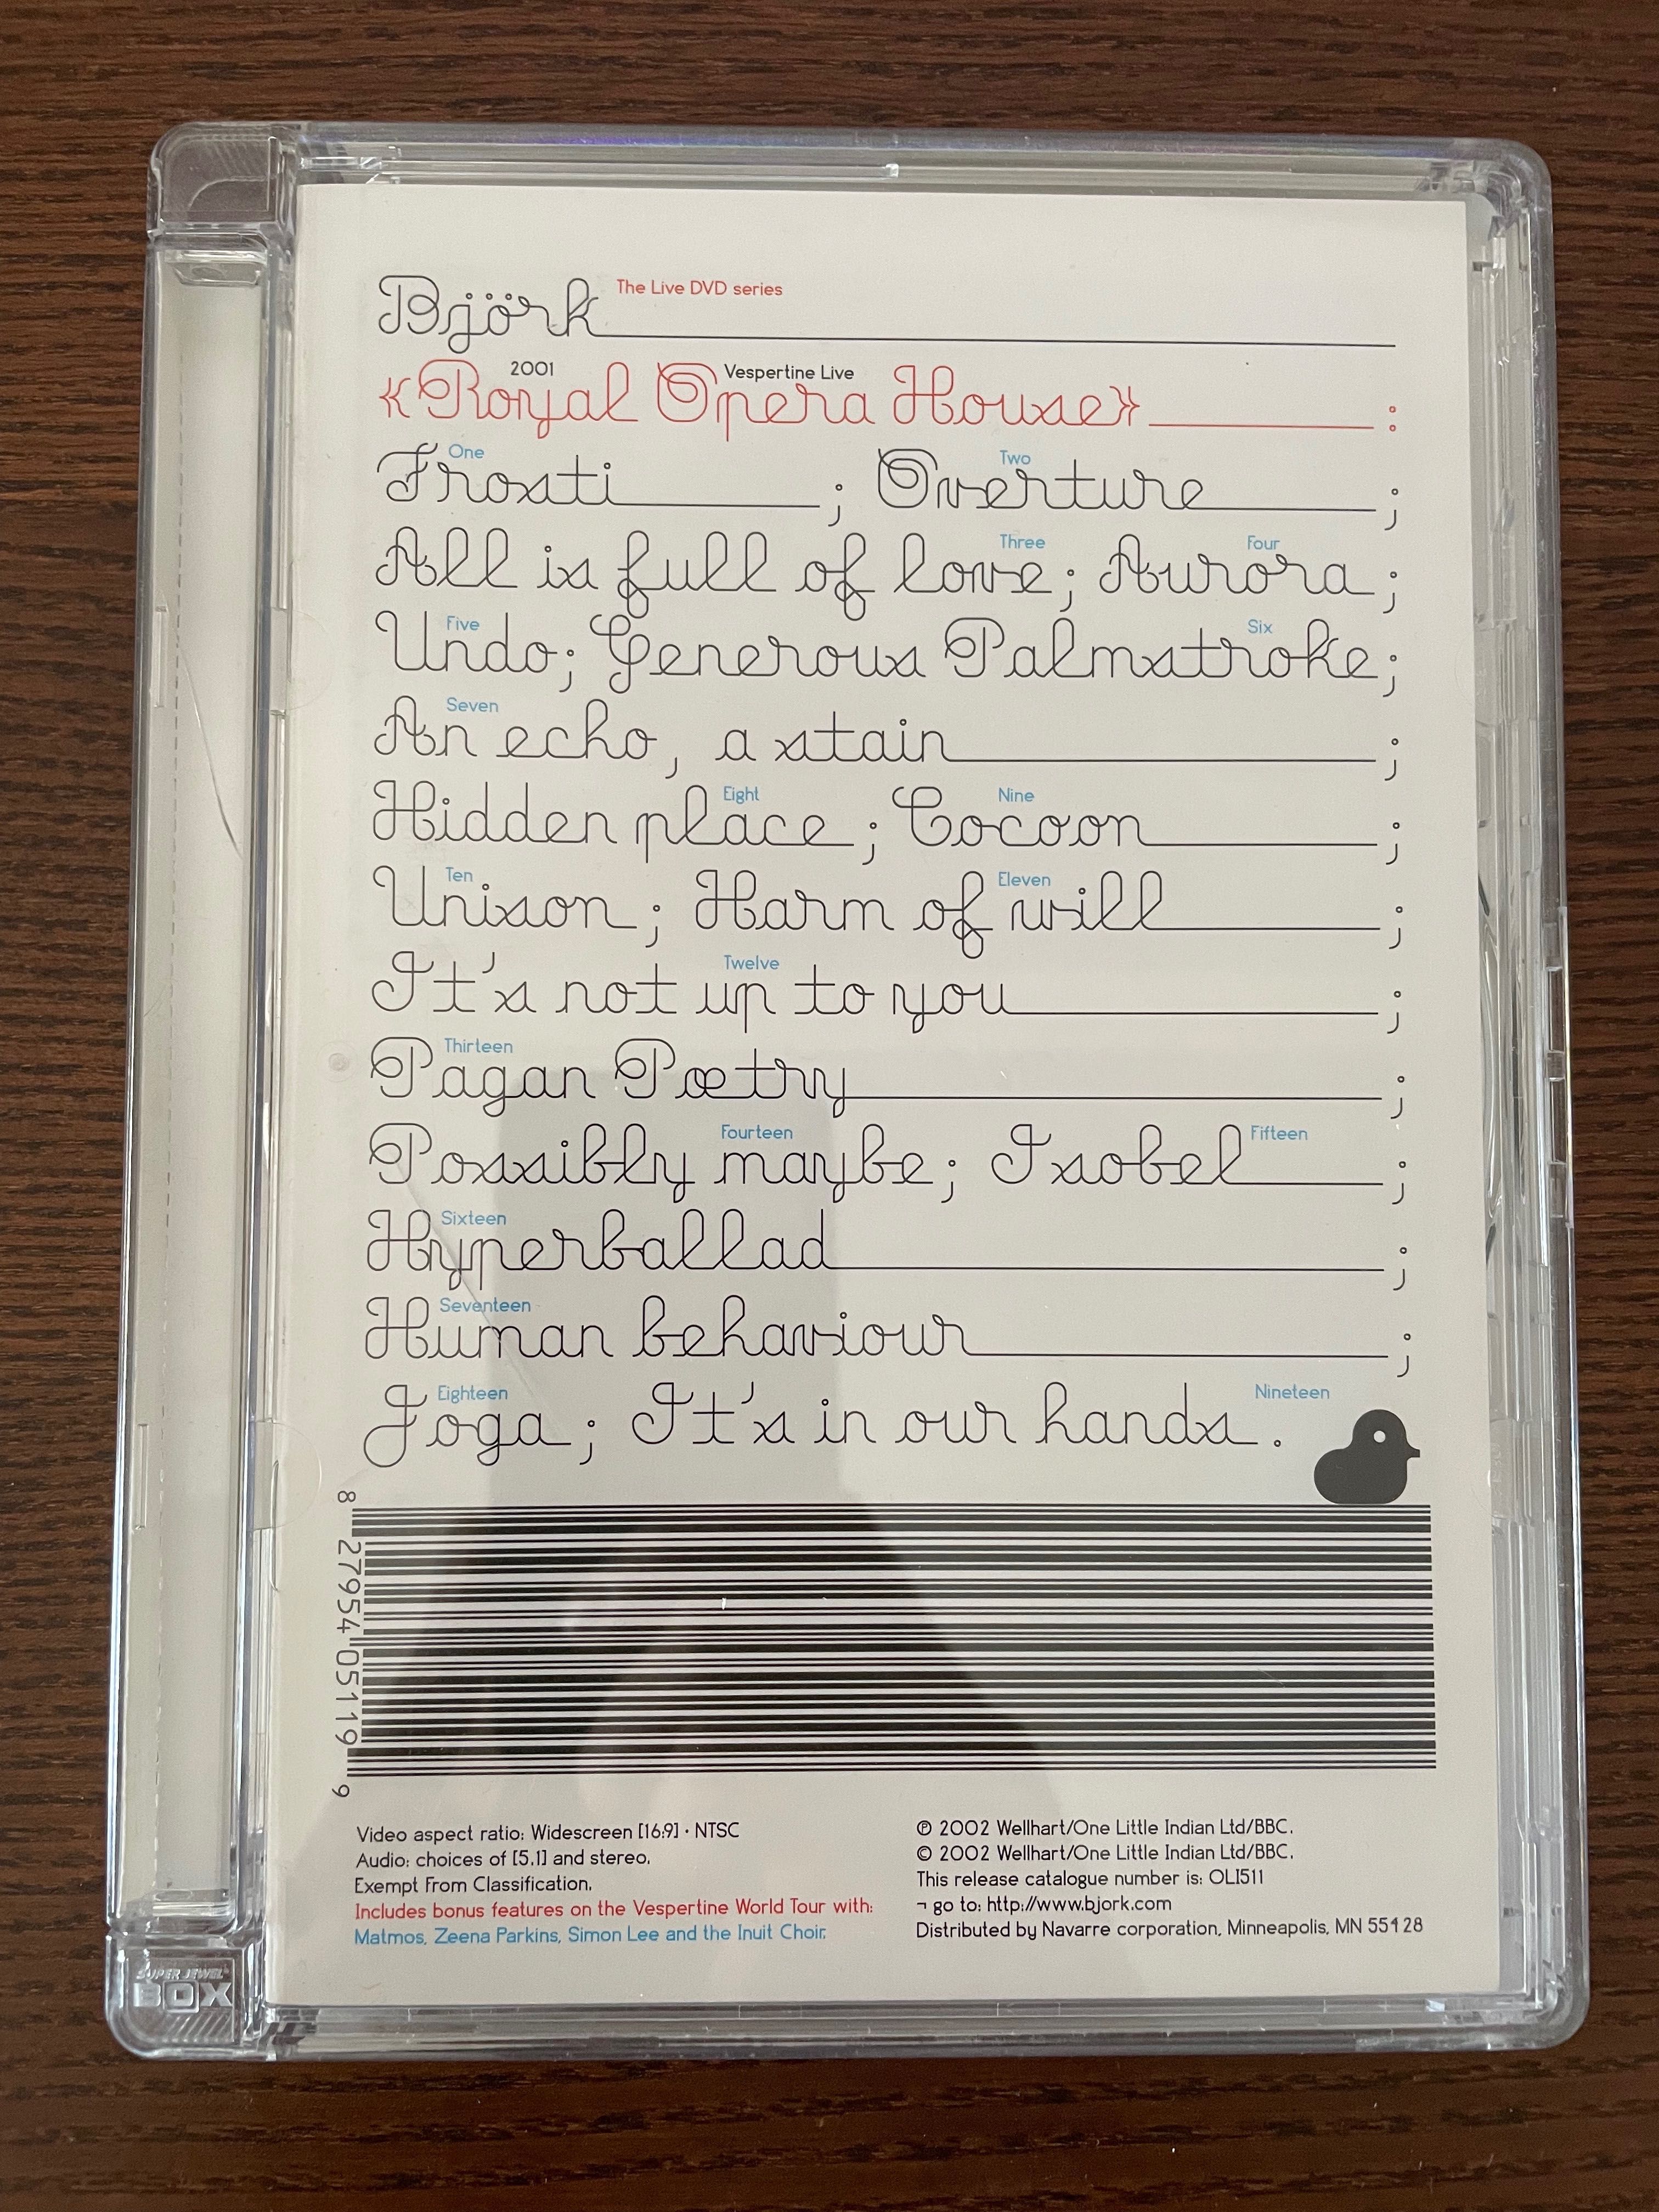 Björk The Live DVD series
2001 Vespertine Live
«Royal Opera House» :
One Two
Frosti ; Overture ;
Three Four
All is full of love; Aurora ;
Five Six
Undo; Generous Palmstroke;
Seven
An echo, a stain ;
Eight Nine
Hidden place ; Cocoon ;
Ten Eleven
Unison ; Harm of will ;
Twelve
It's not up to you ;
Thirteen
Pagan Pœtry ;
Fourteen Fifteen
Possibly maybe; Isobel ;
Sixteen
Hyperballad ;
Seventeen
Human behaviour ;
Eighteen Nineteen
Joga ; It's in our hands.
8 27954 05119 9
Video aspect ratio: Widescreen [16:9] · NTSC
Audio: choices of [5.1] and stereo.
Exempt From Classification.
Includes bonus features on the Vespertine World Tour with:
Matmos, Zeena Parkins, Simon Lee and the Inuit Choir.
℗ 2002 Wellhart/One Little Indian Ltd/BBC.
© 2002 Wellhart/One Little Indian Ltd/BBC.
This release catalogue number is: OLI511
¬ go to: http://www.bjork.com
Distributed by Navarre corporation, Minneapolis, MN 55428
SUPER JEWEL
BOX